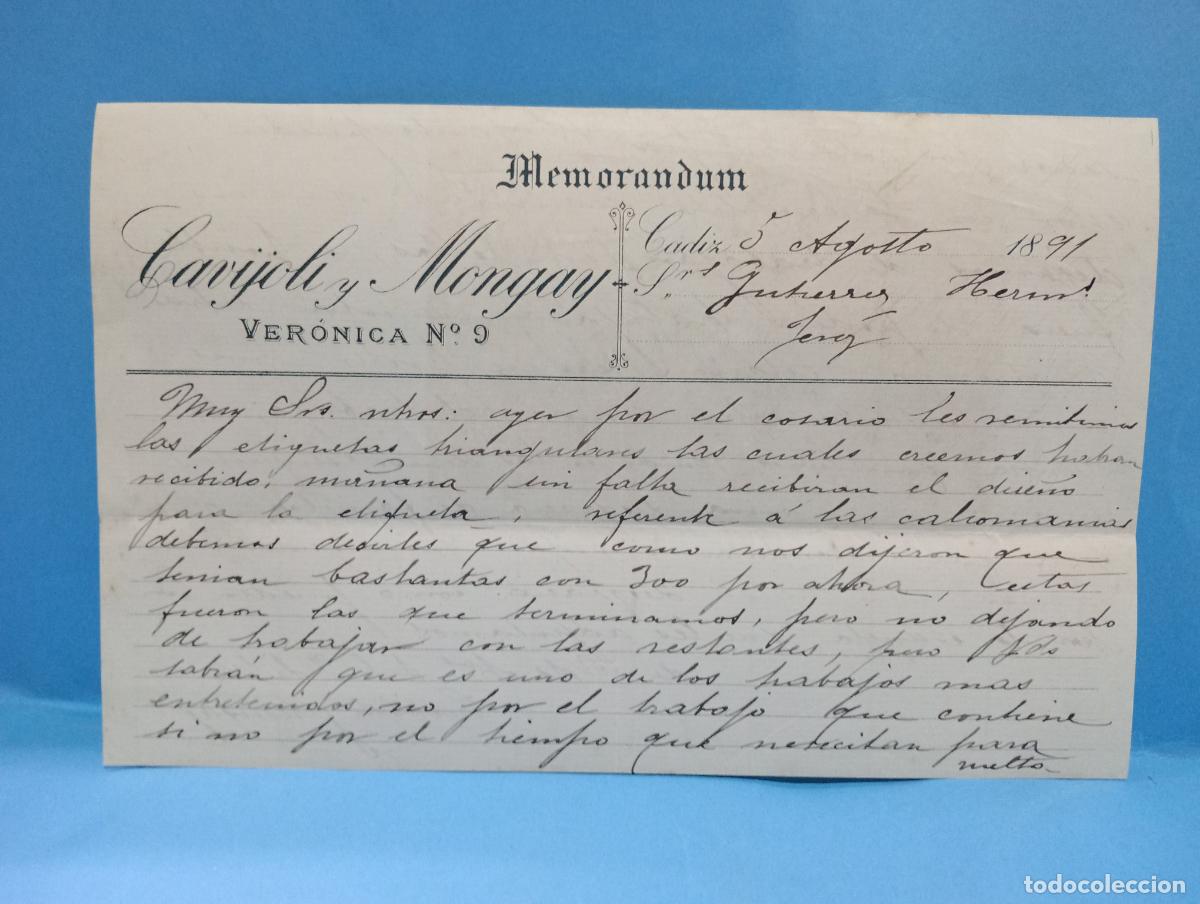 Memorandum
Cavijoli y Mongay
VERÓNICA Nº 9
Cadiz 5 Agosto 1891
Srs Gutierrez Herms.
Jerez
Muy Srs. ntros: ayer por el cosario les remitimos
las etiquetas triangulares las cuales creemos habran
recibido, mañana sin falta recibiran el diseño
para la etiqueta, referente á las calcomanias
debemos decirles que como nos dijeron que
tenian bastantas con 300 por ahora, estas
fueron las que terminamos, pero no dejando
de trabajar con las restantes, pero Vds
sabrán que es uno de los trabajos mas
entretenidos, no por el trabajo que contiene
si no por el tiempo que necesitan para
vuelta
todocoleccion